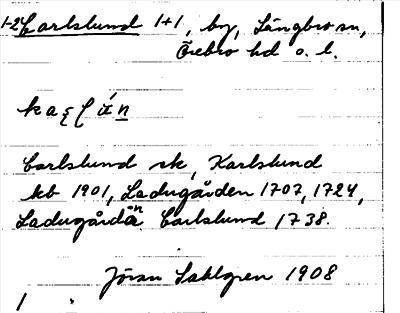 1-2 Carlslund 1+1, by, Längbro sn,
Örebro hd o. l.
Carlslund sk, Karlslund
kb 1901, Ladugården 1707, 1724,
Ladugårdân Carlslund 1738.
Jöran Sahlgren 1908
1